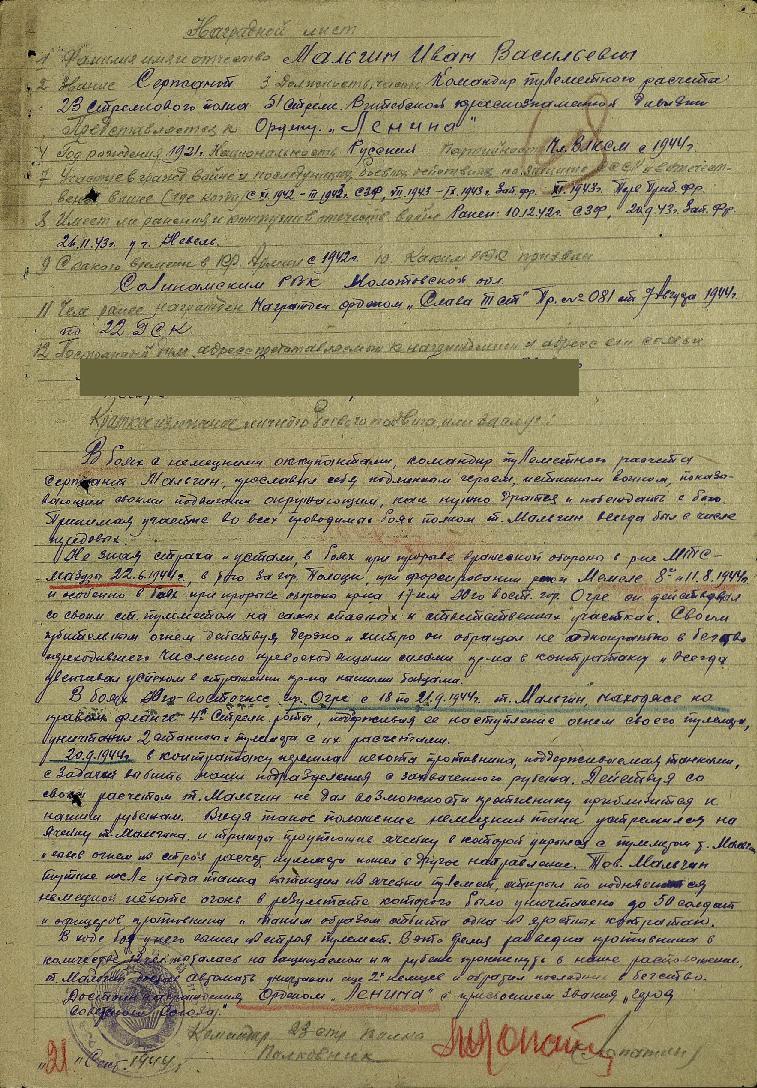 Наградной лист
1 Фамилия имя и отчество Мальгин Иван Васильевич
2 Звание Сержант 3 Должность, часть Командир пулеметного расчета
23 Стрелкового полка 51 Стрелк. Витебской краснознаменной дивизии
Представляется к Ордену "Ленина"
4 Год рождения 1921г. Национальность Русский Партийность Чл. ВЛКСМ с 1944г.
7 Участие в гражд. войне и последующих боевых действиях по защите СССР и отечест-
венной войне (где когда) с XI.1942 - III.1943 СЗФ, VII.1943 - IX.1943г. Зап. фр. XI.1943г. Перв. Приб. Фр.
8 Имеет ли ранения и контузии в отечеств. войне Ранен: 10.12.42г. СЗФ, 20.9.43. Зап. Фр.
26.11.43г. у г. Невель.
9 С какого времени в Кр. Армии с 1942г. 10. Каким РВК призван
РВК Молотовской обл.
11 Чем ранее награжден Награжден орденом "Слава III ст" Пр. №081 от 7 Августа 1944г.
по 22 ГСК
12 Постоянный дом. адрес представляемого к награждению и адрес его семьи
Краткое изложение личного боевого подвига или заслуг:
В боях с немецкими оккупантами, командир пулеметного расчета
сержант Мальгин, прославил себя подлинным героем, истинным воином, показы-
вающим своими подвигами окружающим, как нужно драться и побеждать в бою.
Принимая участие во всех проводимых боях полком т. Мальгин всегда был в числе
передовых.
Не зная страха и устали, в боях при прорыве вражеской обороны в р-не
22.6.1944г., в бою за гор. Полоцк, при форсировании реки Мемеле 8го и 11.8.1944г.
и особенно в боях при прорыве обороны пр-ка 17 км Юго вост. гор. Огре он действовал
со своим ст. пулеметом на самых опасных и ответственных участках. Своим
губительным огнем действуя дерзко и хитро он обращал не однократно в бегство
переходившего численно превосходящими силами пр-ка в контратаку и всегда
увенчивал успехом в отражении пр-ка нашими бойцами.
В боях Юго-восточнее гор. Огре с 18 по 21.9.1944г. т. Мальгин, находясь на
правом фланге 4й Стрелк. роты, поддерживая ее наступление огнем своего пулемета,
уничтожил 2 станковых пулемета с их расчетами.
20.9.1944г. в контратаку перешла пехота противника, поддерживаемая танками,
с задачей выбить наши подразделения с захваченного рубежа. Действуя со
своим расчетом т. Мальгин не дал возможности противнику приблизится к
нашим рубежам. Видя такое положение немецкий танк устремился на
ячейку т. Мальгина и трижды ячейку в которой укрылся с пулеметом т. Мальгин
огнем из строя расчет пулемета пошел в другое направление. Тов. Мальгин
после ухода танка вытащил из ячейки пулемет, открыл по поднявшейся
немецкой пехоте огонь в результате которого было уничтожено до 50 солдат
и офицеров противника и таким образом отбита одна из яростных контратак.
В ходе боя у него вышел из строя пулемет. В это время разведка противника в
количестве пыталась на защищаемом им рубеже проникнуть в наше расположение.
т. Мальгин автомата уничтожил еще 2х немцев и обратил последних в бегство.
Достоин награждения Орденом "Ленина" с присвоением звания "герой
Советского Союза".
Командир 23 стр полка
Полковник (Лопатин)
"21" 1944г.